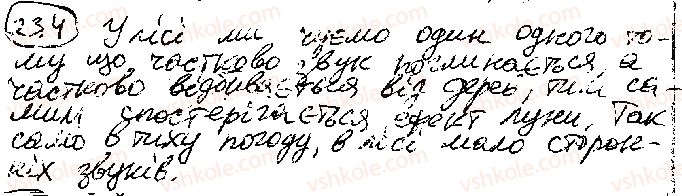 234 У лісі ми чуємо один одного то-
му що частково звук поглинається, а
частково відбивається від дерев, тим са-
мим спостерігається ефект луни. Так
само в тиху погоду, в лісі мало сторон-
ніх звуків.